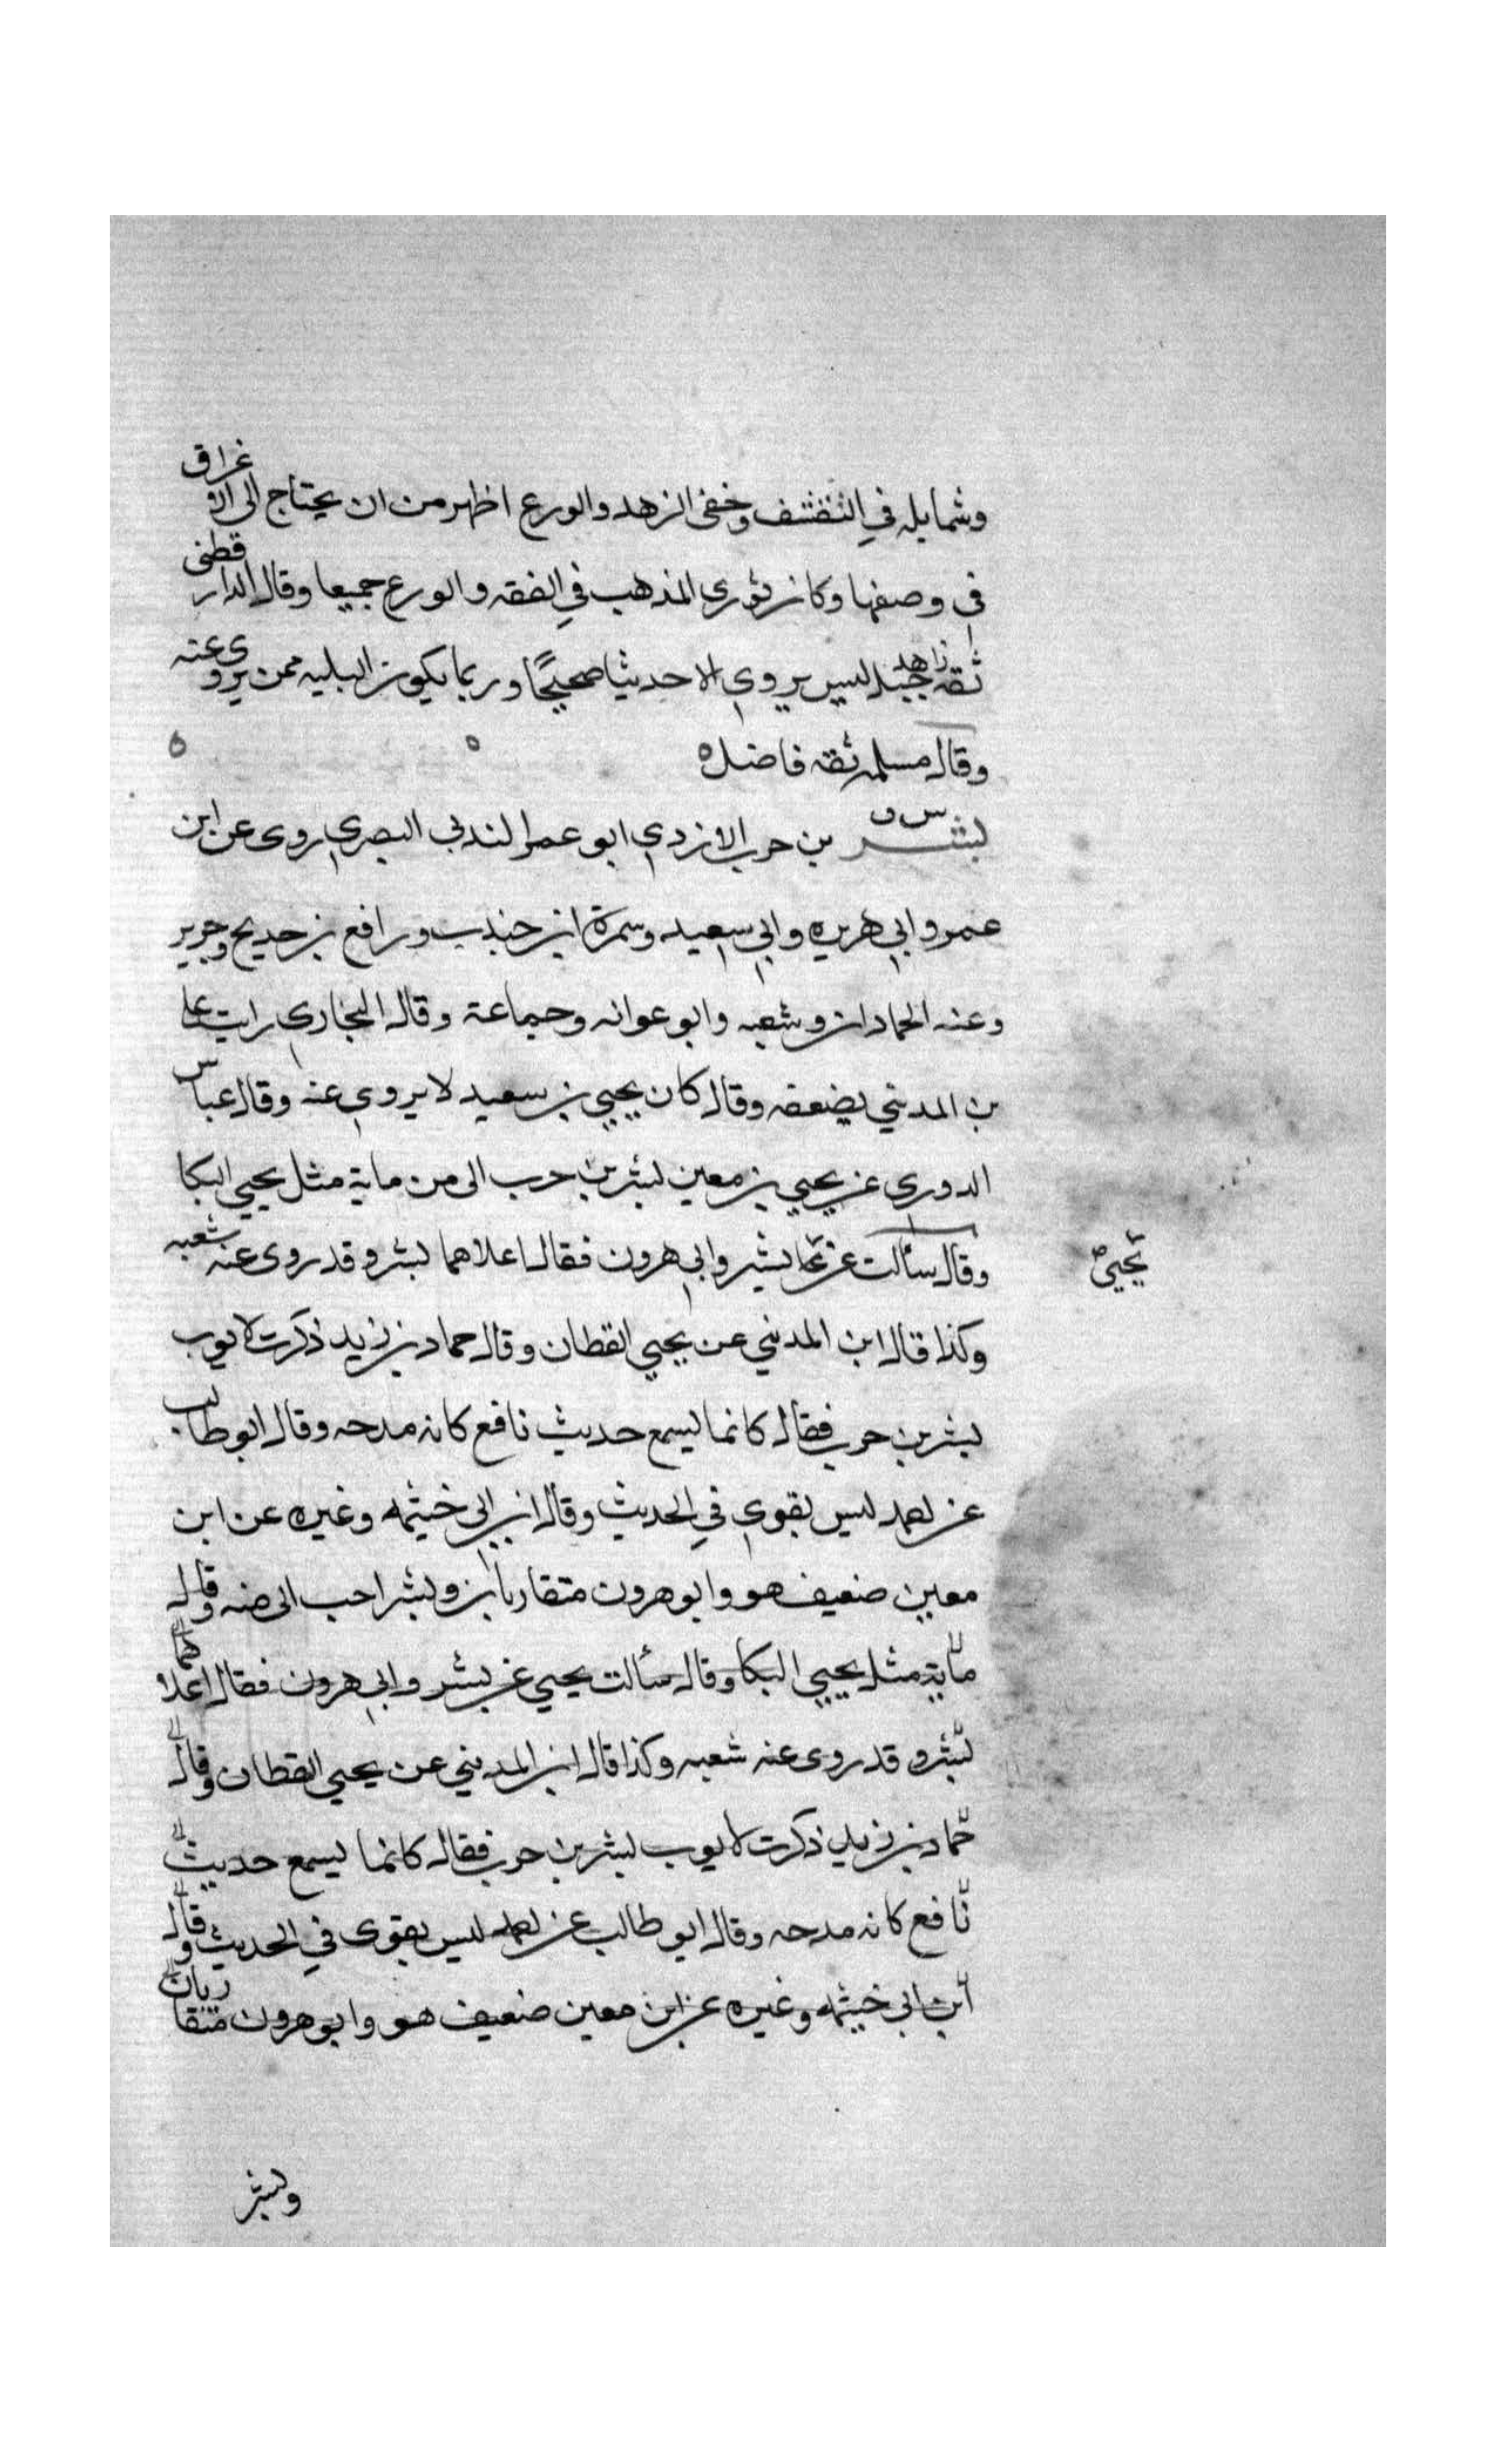 وشمايله في التقشف وخفى الزهد والورع اظهر من ان يحتاج الى الاغراق
في وصفها وكان ثوري المذهب في الفقه والورع جميعا وقال الدارقطني
ثقة زاهد جبل ليس يروي الا حديثا صحيحا وربما يكون البليه ممن يروى عنه
وقال مسلمه ثقه فاضل
س ق
بشر بن حرب الازدي ابو عمر الندبي البصري روى عن ابن
عمر وابي هريره وابي سعيد وسمرة ابن جندب ورافع بن خديج وجرير
وعنه الحمادان وشعبه وابو عوانه وجماعة وقال البخاري رايت علي
بن المديني يضعفه وقال كان يحيي بن سعيد لا يروي عنه وقال عباس
الدوري عن يحيي بن معين بشر بن حرب الى من ماية مثل يحيي البكا
وقال سألت عن بشر وابي هرون فقال اعلاهما بشر وقد روى عنه شعبه
يحيي
وكذا قال ابن المديني عن يحيي القطان وقال حماد بن زيد ذكرت لايوب
بشر بن حرب فقال كانما يسمع حديث نافع كانه مدحه وقال ابو طالب
عن احمد ليس بقوي في الحديث وقال ابن ابي خيثمه وغيره عن ابن
معين ضعيف هو وابو هرون متقاربان وبشر احب الى منه وقال
ماية مثل يحيي البكا وقال سألت يحيي عن بشر وابي هرون فقال اعلاهما
بشر وقد روى عنه شعبه وكذا قال ابن المديني عن يحيي القطان وقال
حماد بن زيد ذكرت لايوب بشر بن حرب فقال كانما يسمع حديث
نافع كانه مدحه وقال ابو طالب عن احمد ليس بقوى في الحديث وقال
ابن ابي خيثمه وغيره عن ابن معين ضعيف هو وابو هرون متقاربان
وبشر